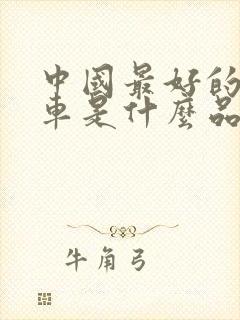 中國最好的
車是什麼品
牛角弓